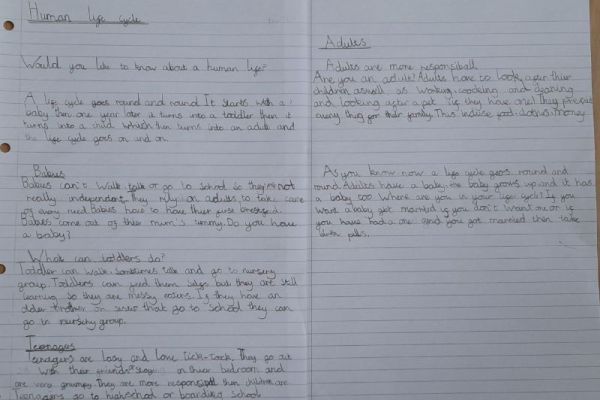 Human life cycle
Would you like to know about a human life?
A life cycle goes round and round. It starts with a
baby then one year after it turns into a toddler then it
turns into a child which then turns into an adult and
the life cycle goes on and on.
Babies
Babies can't walk talk or go to school so they're not
really independent. They rely on adults to take care
of every need. Babies have to have their
Babies come out of their mum's tummy. Do you have
a baby?
What can toddlers do?
Toddler can walk sometimes talk and go to nursery
group. Toddlers can feed them selfs but they are still
learning so they are messy eaters. If they have an
older brother or sister that go to school they can
go to group.
Teenages
Teenagers are lazy and love tick-tock. They go out
with their friends stay in thier bedroom and
are very grumpy. They are more then children are
Teenagers go to highschool or boarding school
Adults
Adults are more responsiball.
Are you an adult? Adults have to look after thier
children aswell as working, cooking and cleaning
and looking after a pet (if they have one) They
every thing for their family. This food, clothes, money
As you know now a life cycle goes round and
round. Adults have a baby, the baby grows up and it has
a baby too. Where are you in your life cycle? If you
want a baby get married if you don't want one or if
you have had a one and you got married then take
pills.